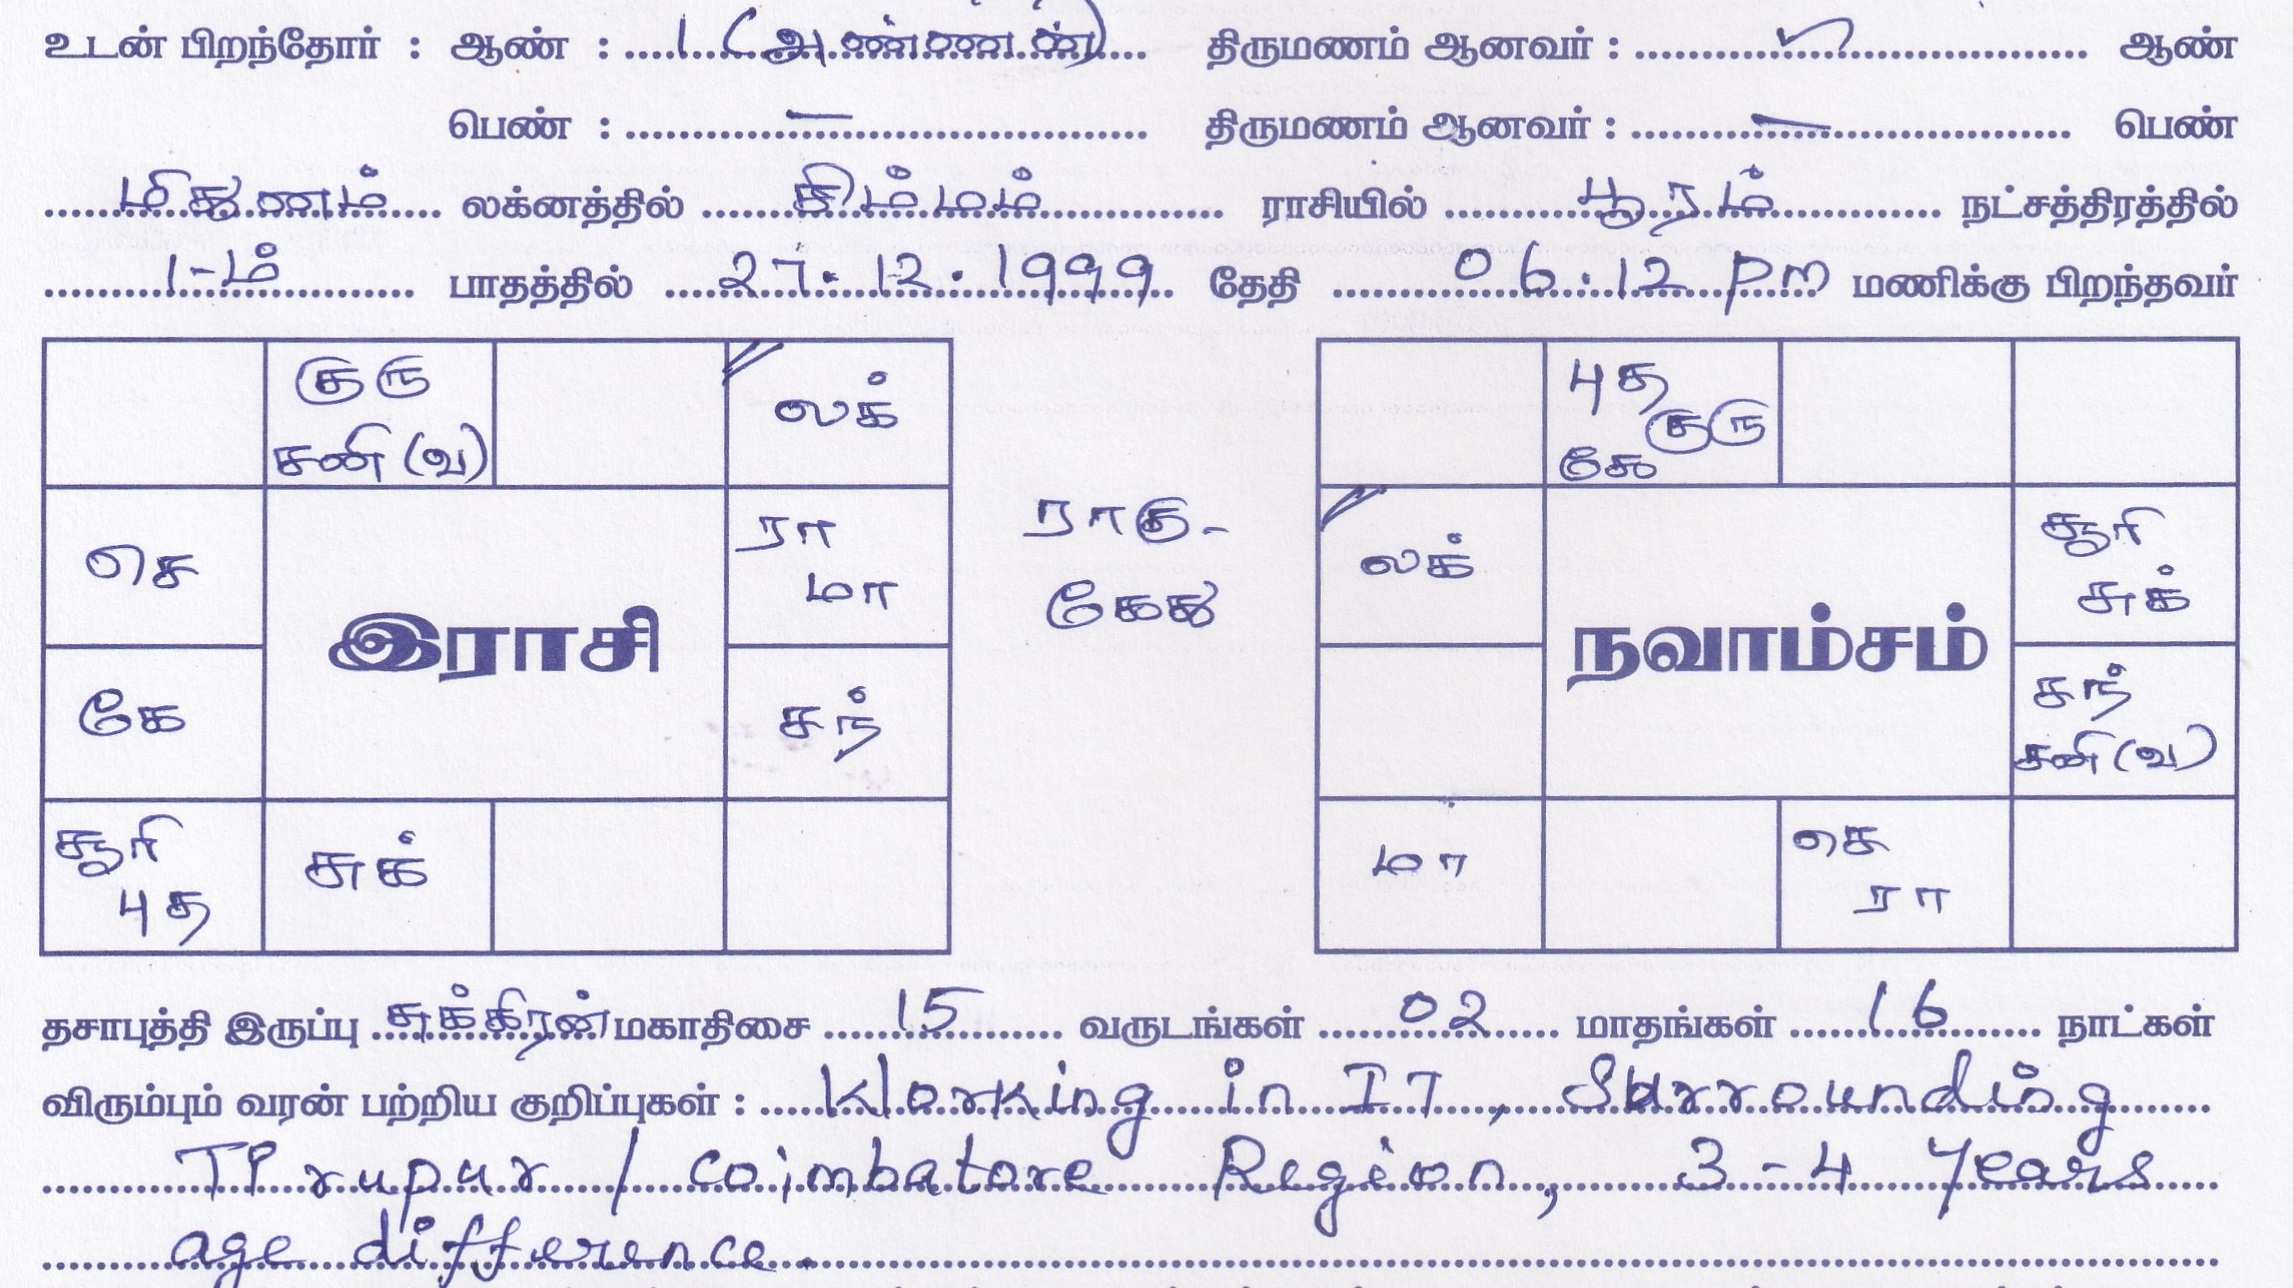 உடன் பிறந்தோர் : ஆண் : 1 (அண்ணன்) திருமணம் ஆனவர் : ஆண்
பெண் : — திருமணம் ஆனவர் : — பெண்
மிதுனம் லக்னத்தில் சிம்மம் ராசியில் பூரம் நட்சத்திரத்தில்
1-ம் பாதத்தில் 27.12.1999 தேதி 06.12 pm மணிக்கு பிறந்தவர்
குரு
சனி (வ)
லக்
செ
ரா
மா
இராசி
கே
சந்
சூரி
புத
சுக்
ராகு-
கேது
புத
குரு
கே
லக்
சூரி
சுக்
நவாம்சம்
சந்
சனி (வ)
மா
செ
ரா
தசாபுத்தி இருப்பு சுக்கிரன் மகாதிசை 15 வருடங்கள் 02 மாதங்கள் 16 நாட்கள்
விரும்பும் வரன் பற்றிய குறிப்புகள் : Working in IT, Surrounding
Tirupur / Coimbatore Region, 3-4 Years
age difference.